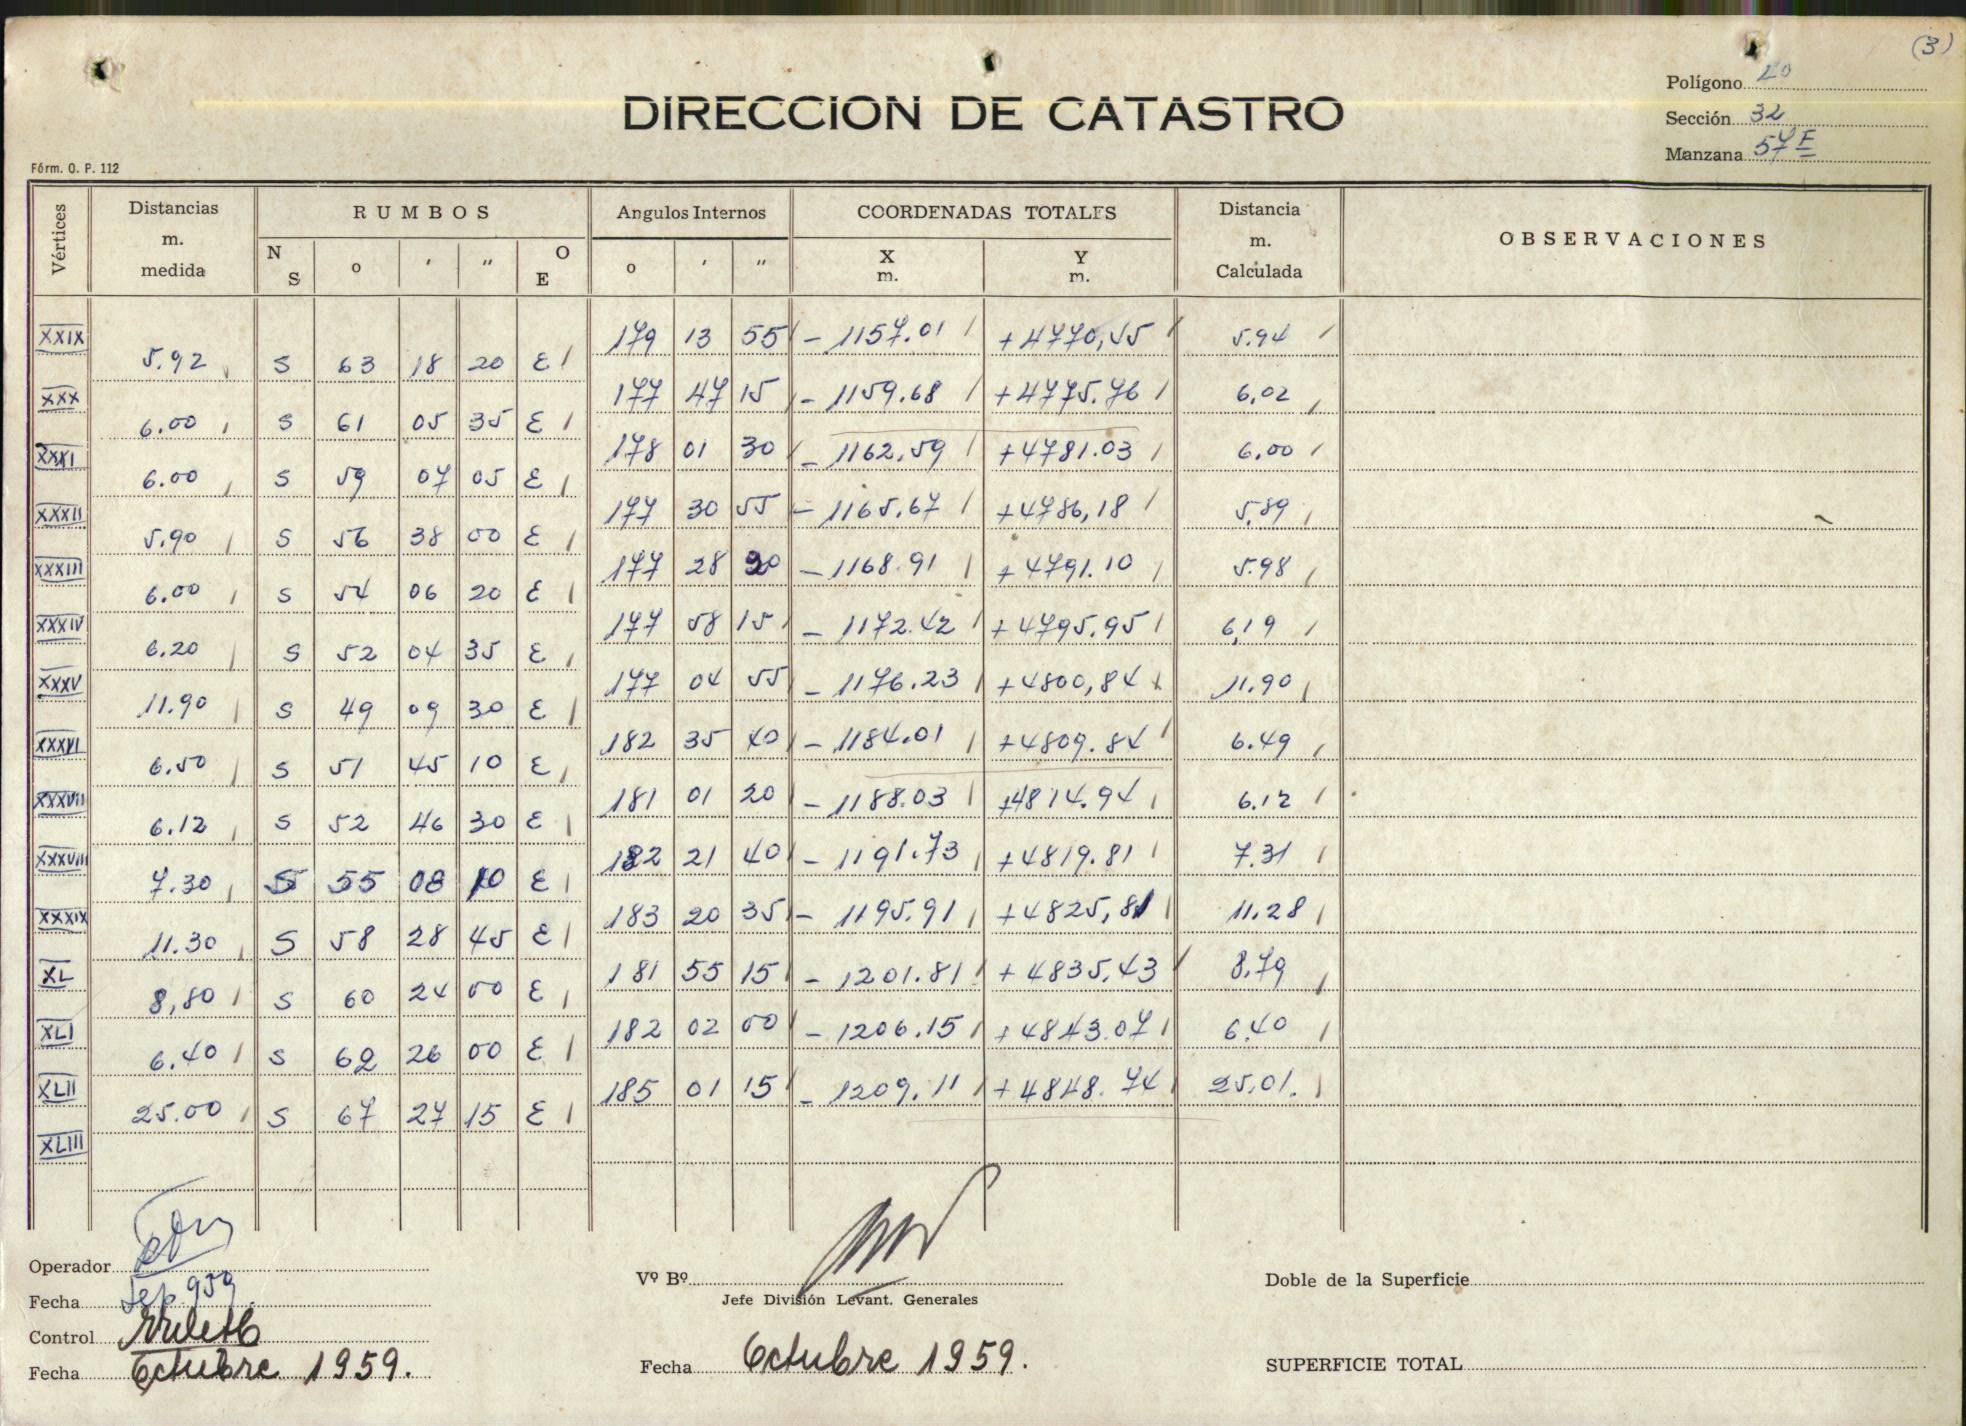 (3)
Polígono 40
DIRECCION DE CATASTRO
Sección 32
Manzana 57E
Fórm. O. P. 112
Vértices Distancias m. medida RUMBOS Angulos Internos COORDENADAS TOTALES Distancia m. Calculada OBSERVACIONES
N S o ' " O E o ' " X m. Y m.
XXIX 179 13 55 - 1157.01 +4770,45 5.94
5.92 S 63 18 20 E
XXX 177 47 15 - 1159.68 +4775.76 6,02
6.00 S 61 05 35 E
XXXI 178 01 30 - 1162,59 +4781.03 6,00
6.00 S 59 07 05 E
XXXII 177 30 55 - 1165,67 +4786,18 5,89
5.90 S 56 38 00 E
XXXIII 177 28 20 - 1168.91 +4791.10 5.98
6.00 S 54 06 20 E
XXXIV 177 58 15 - 1172.42 +4795.95 6,19
6.20 S 52 04 35 E
XXXV 177 04 55 - 1176.23 +4800,84 11.90
11.90 S 49 09 30 E
XXXVI 182 35 40 - 1184.01 +4809.84 6.49
6.50 S 51 45 10 E
XXXVII 181 01 20 - 1188.03 +4814.94 6.12
6.12 S 52 46 30 E
XXXVIII 182 21 40 - 1191.73 +4819.81 7.31
7.30 S 55 08 10 E
XXXIX 183 20 35 - 1195.91 +4825,81 11.28
11.30 S 58 28 45 E
XL 181 55 15 - 1201.81 +4835,43 8,79
8,80 S 60 24 00 E
XLI 182 02 00 - 1206.15 +4843.07 6.40
6.40 S 62 26 00 E
XLII 185 01 15 - 1209.11 +4848.74 25.01.
25.00 S 67 27 15 E
XLIII
Operador
Vº Bº
Doble de la Superficie
Fecha Sep 959
Jefe División Levant. Generales
Control
Fecha Octubre 1959.
Fecha Octubre 1959.
SUPERFICIE TOTAL